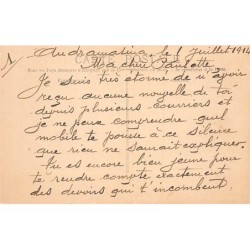 1) Andramasina, le 1 Juillet 1914
Ma chère Paulette
Je suis très étonné de n'avoir
reçu aucune nouvelle de toi
depuis plusieurs courriers et
je ne peux comprendre quel
mobile te pousse à ce silence
que rien ne saurait expliquer.
Tu es encore bien jeune pour
te rendre compte exactement
des devoirs qui t'incombent.